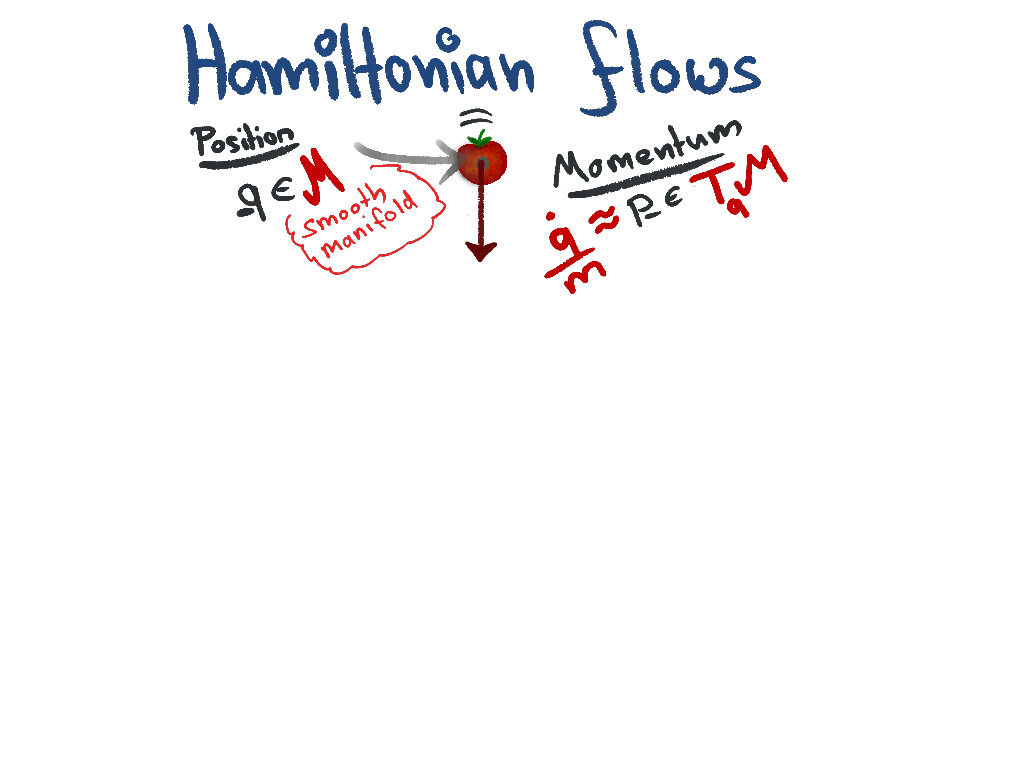 Hamiltonian flows
Position
q ∈ M
smooth
manifold
Momentum
q̇/m ≈ p ∈ T_q M